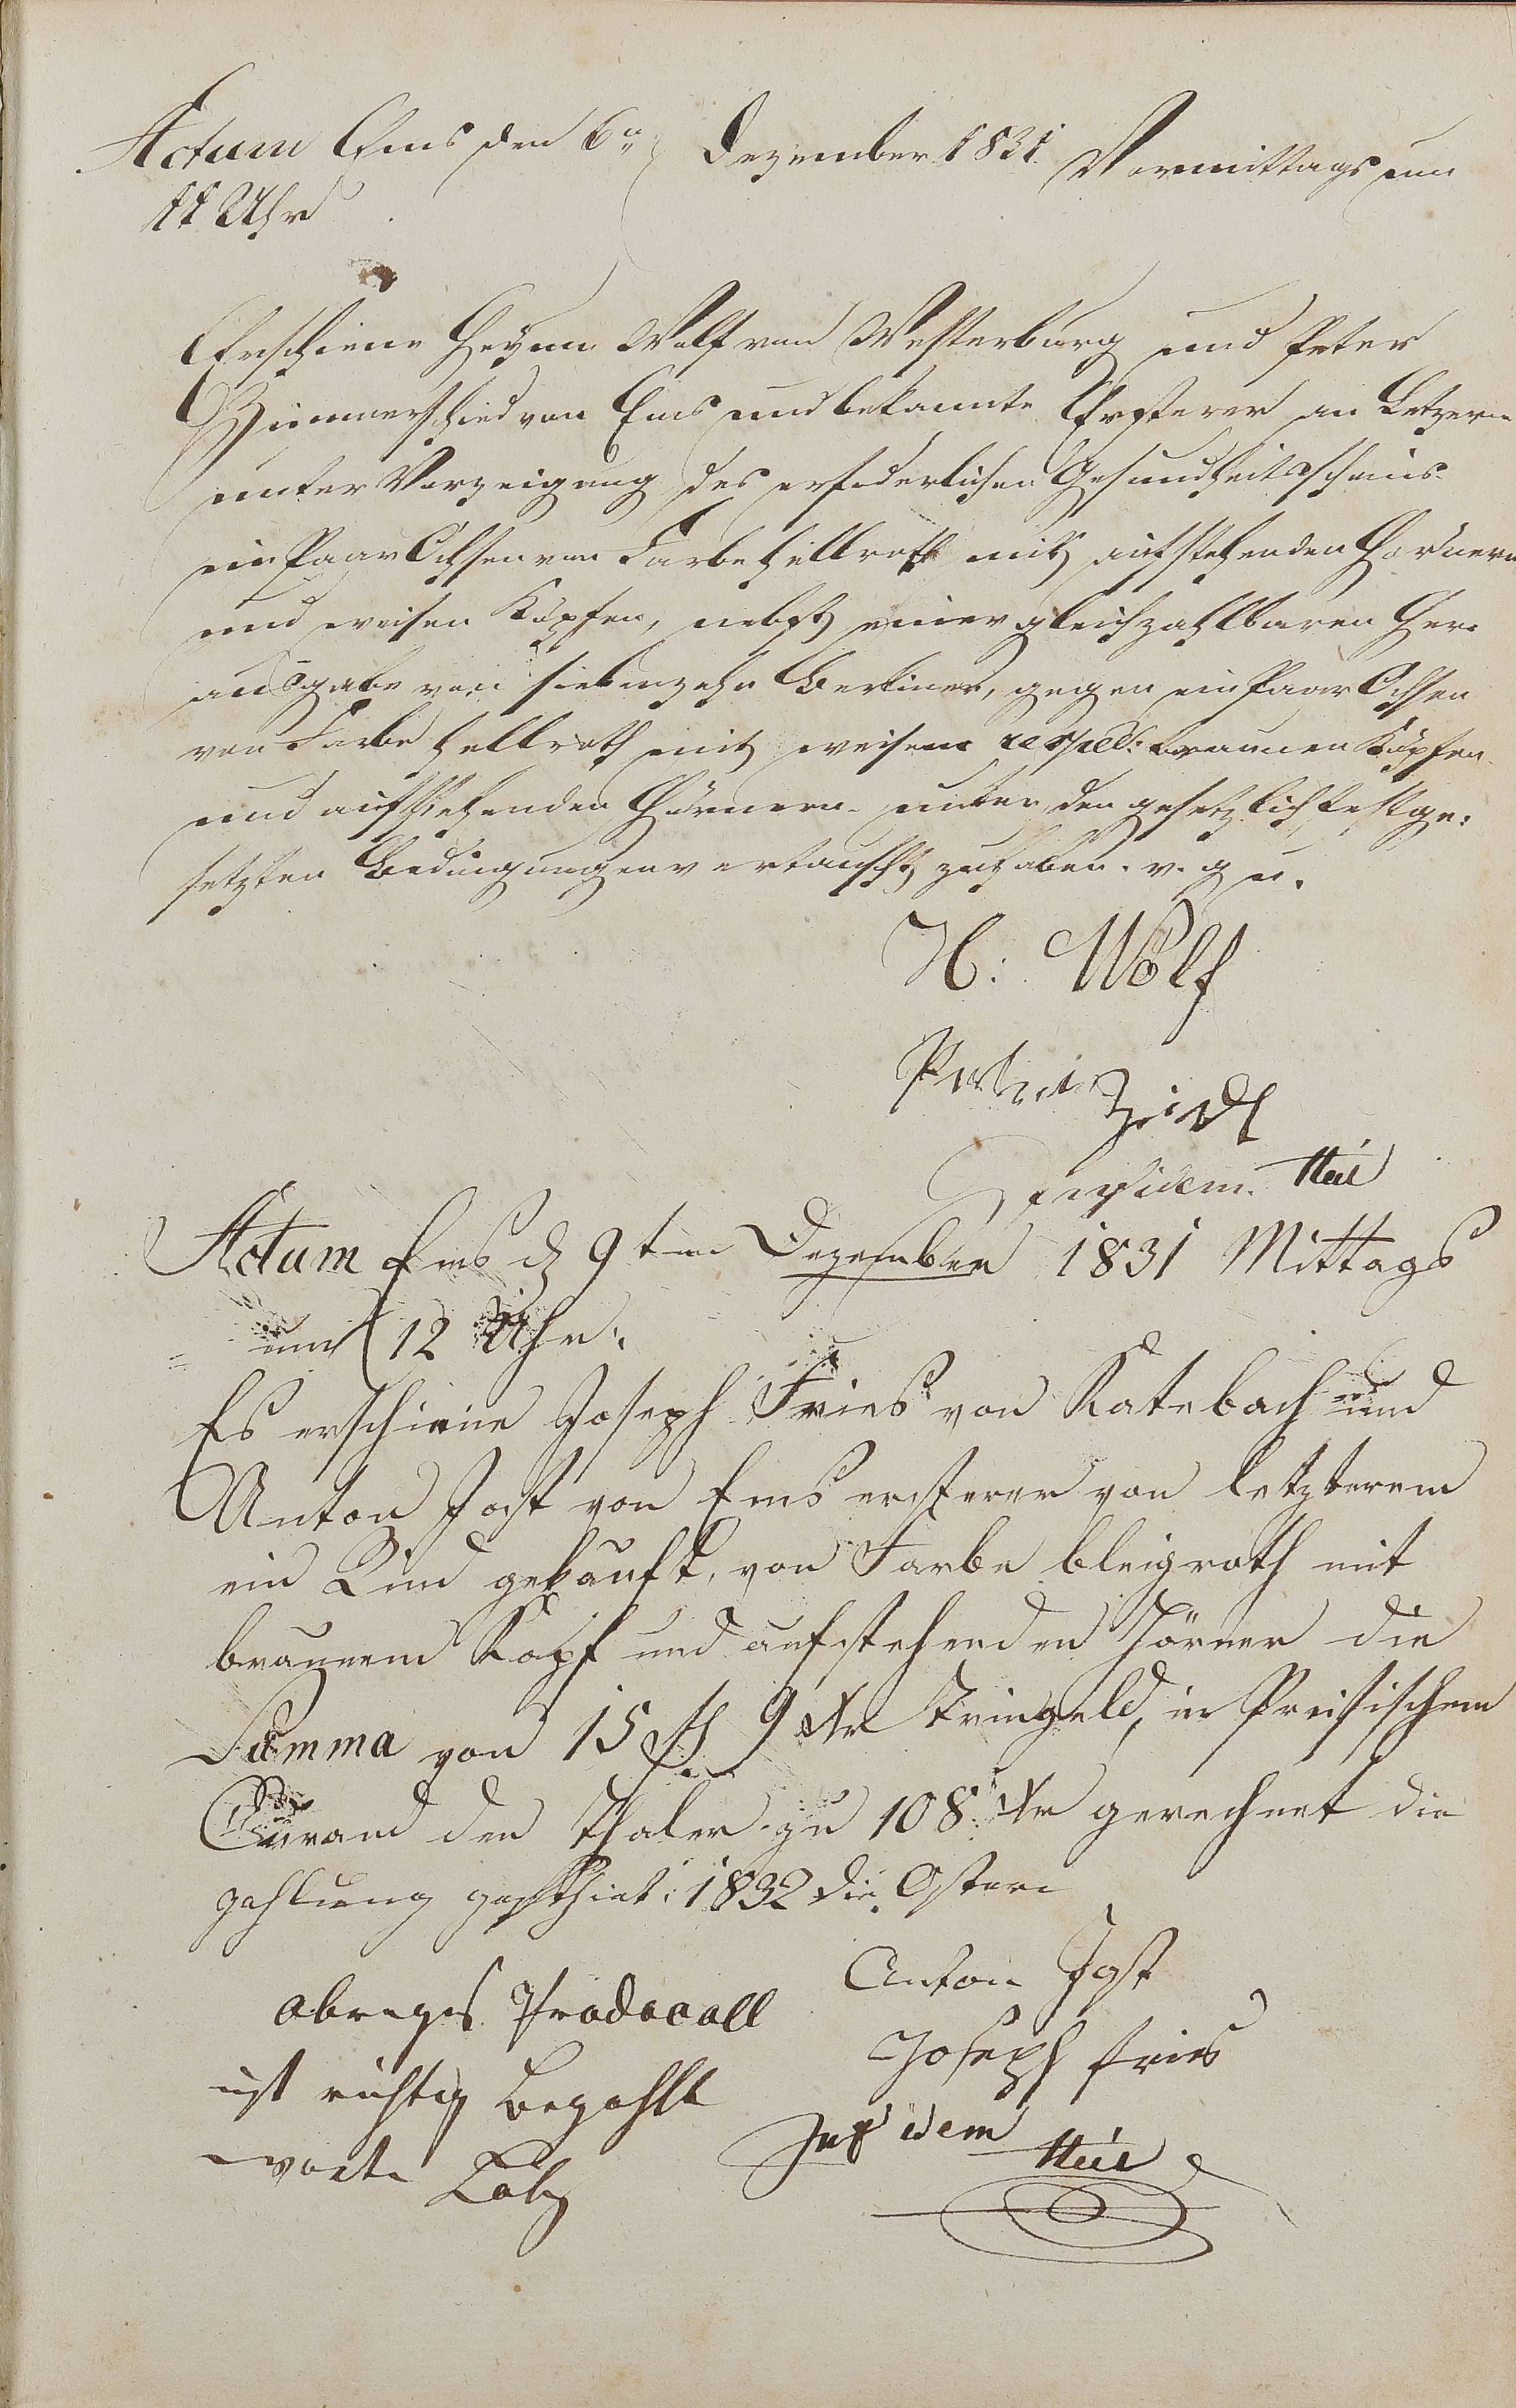 Actum Ems den 6n Dezember 1831 Vormittags um
11 Uhr
Erschiene Heyum Wolf von Westerburg und Peter
Zimmerschied von Ems und bekannte Ersterer an Letzern
unter Vorzeigung des erfoderlichen Gesundheitsscheins
ein Paar Ochsen von Farbe hellroth mit aufstehenden Hörnern
und weisen Köpfen, nebst einer gleich zahlbaren Her-
ausgabe von siebenzehn Berliner, gegen ein Paar Ochsen
von Farbe hellroth mit weisem respect: braunen Köpfen
und aufstehenden Hörnern unter den gesetzlich festge-
setzten Bedingungen vertauscht zu haben. v. g u.
H: Wolf
Peter
in fidem
Actum Ems d 9ten Dezember 1831 Mittags
um 12 Uhr.
Es erschiene Joseph Fries von Katebach und
Anton Jost von Ems ersterer von letzterem
ein Rind gekauft, von Farbe bleigroth mit
braunem Kopf und aufstehenden Hörner die
Summa von 15 fl 9 Xr Tringeld, in Preisischem
Curand den Thaler zu 108 Xr gerechnet die
Zahlung geschiet: 1832 die Ostern
Anton Jost
Joseph Fries
In fidem
obriges Prodocoll
ist richtig bezahlt
worte